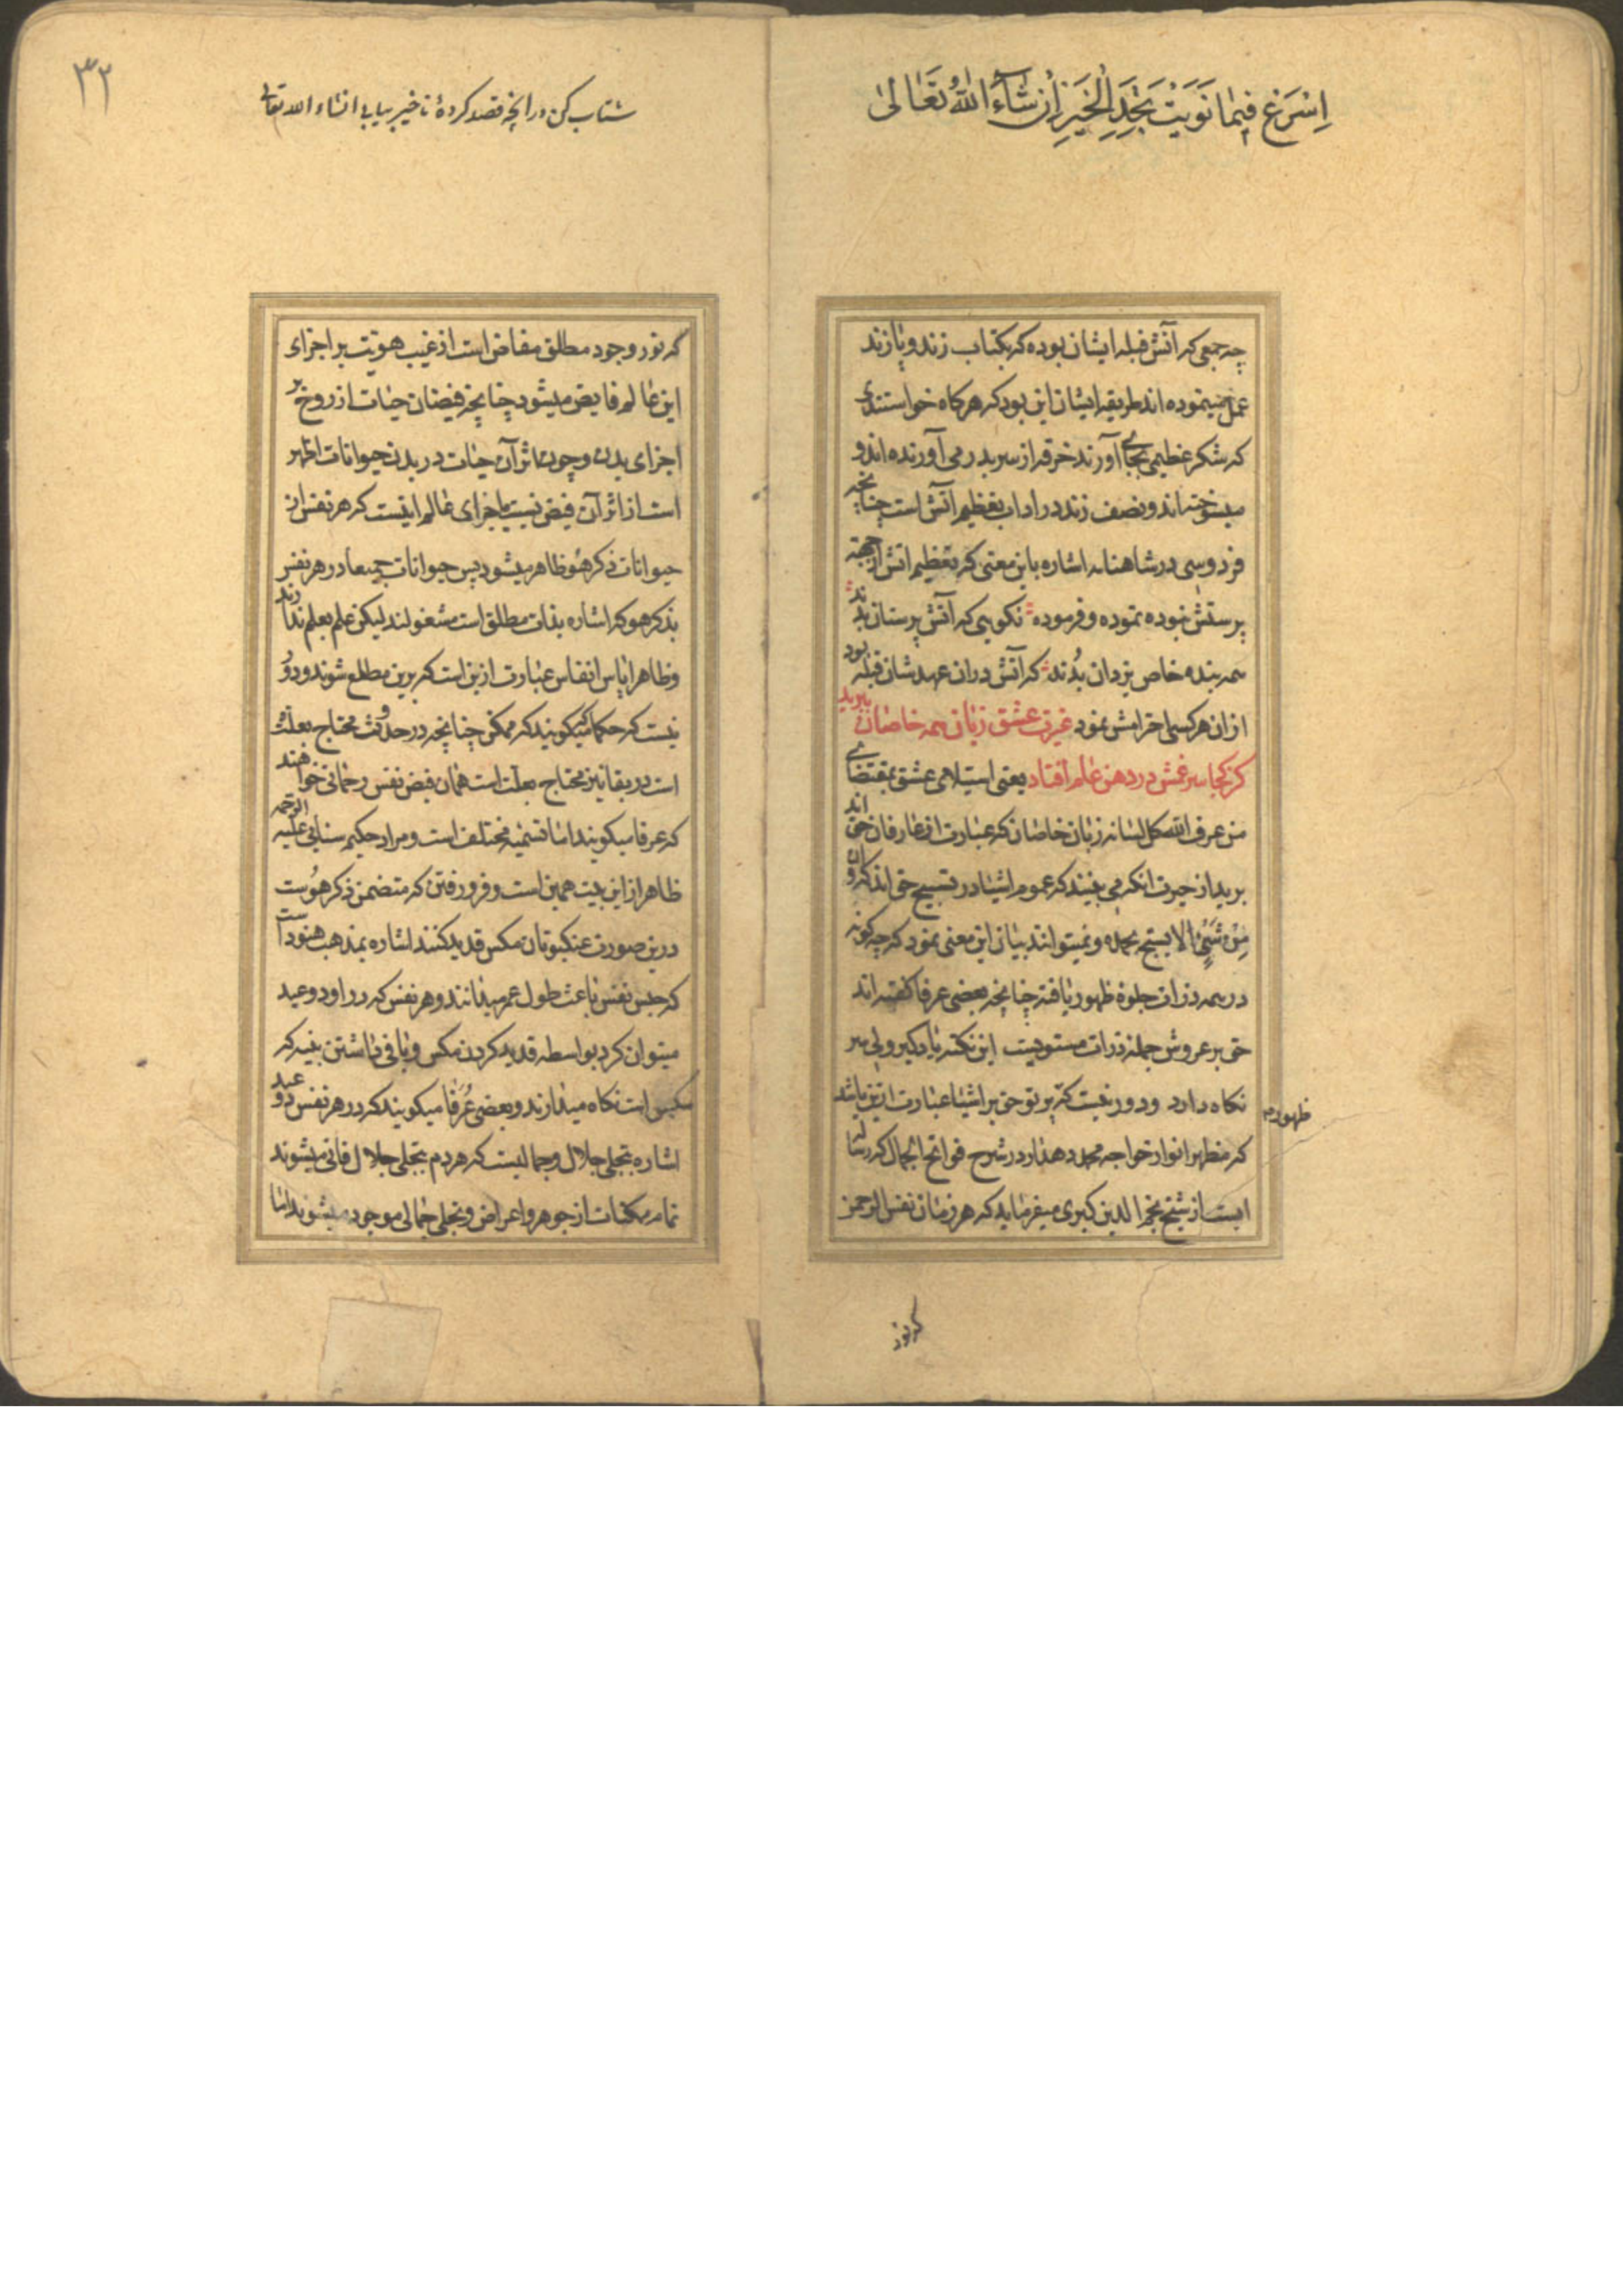 اِسْرَعْ فِیمٰا نَوَیْتَ تَجِدِ الْخَیْرَ اِنْ شٰآءَ اللّٰهُ تَعٰالیٰ
چه جمعی که آتش قبله ایشان بوده که بکتاب زند و پازند
عمل مینموده اند طریقه ایشان این بود که هرکاه خواستندی
که شکر عظیمی بجای آورند خرقه از سر بدر می آورنده اند و
میسوخته اند و نصف زند در اداب تعظیم آتش است چنانچه
فردوسی در شاهنامه اشاره باین معنی که تعظیم اتش از جهته
پرستش نبوده نموده و فرموده نکویی که آتش پرستان بدند
همه بنده خاص یزدان بُدند که آتش دران عهد شان قبله بود
ازان هرکسی احترامش نمود غیرت عشق زبان همه خاصان ببرید
کز کجا سر غمش در دهن عالم افتاد یعنی استیلای عشق بمقتضای
من عرف الله کل لسانه زبان خاصان که عبارت از عارفان حق اند
برید از حیرت انکه می بینند که عموم اشیا در تسبیح حق اند که وان
مِنْ شَیْءٍ الا یسبح بحمده و نمیتوانند بیان این معنی نمود که چه کونه
در همه ذرات جلوهٔ ظهور یافته چنانچه بعضی عرفا کفته اند
حق بر عروش جمله ذرات مستویست این نکته یاد کیر ولی سر
نکاه دارد و دور نیست که پرتو حق بر اشیا عبارت ازین باشد
ظهور
که مظهر انوار خواجه محمد دهدار در شرح فواتح الجمال که رساله
ایست از شیخ نجم الدین کبری میفرماید که هر زمان نفس الرحمن
که نور
۳۲
شتاب کن در انچه قصد کردهٔ تا خیر بیابی انشاء الله تعالی
که نور وجود مطلق مفاض است از غیب هویت بر اجزای
این عالم فایض میشود چنانچه فیضان حیات از روح بر
اجزای بدن و چون اثر آن حیات در بدن حیوانات اظهر
است از اثر آن فیض نسبت باجزای عالم اینست که هر نفس از
حیوانات ذکر هُو ظاهر میشود پس حیوانات جمیعا در هر نفس
بذکر هو که اشاره بذات مطلق است مشغولند لیکن علم بعلم ندارند
و ظاهرا پاس انفاس عبارت ازین است که برین مطلع شوند و دور
نیست که حکما که میکویند که ممکن چنانچه در حدوث محتاج بعلت
است در بقا نیز محتاج بعلت است همان فیض نفس رحمانی خواهند
که عرفا میکویند اما تسمیه مختلف است و مراد حکیم سنایی علیه الرحمه
ظاهرا از این بیت همین است و فرو رفتن که متضمن ذکر هُوست
درین صورت عنکبوتان مکس قدید کنند اشاره بمذهب هنود است
که حبس نفس باعث طول عمر میدانند و هر نفس که درو دو عید
میتوان کرد بواسطه قدید کردن مکس و باقی داشتن بنیه که
مکس است نکاه میدارند و بعضی عُرَفا میکویند که در هر نفس دو عید
اشاره بتجلی جلال و جمالیست که هر دم بتجلی جلال فانی میشوند
تمام ممکنات از جوهر و اعراض و بتجلی جمالی موجود میشوند اما